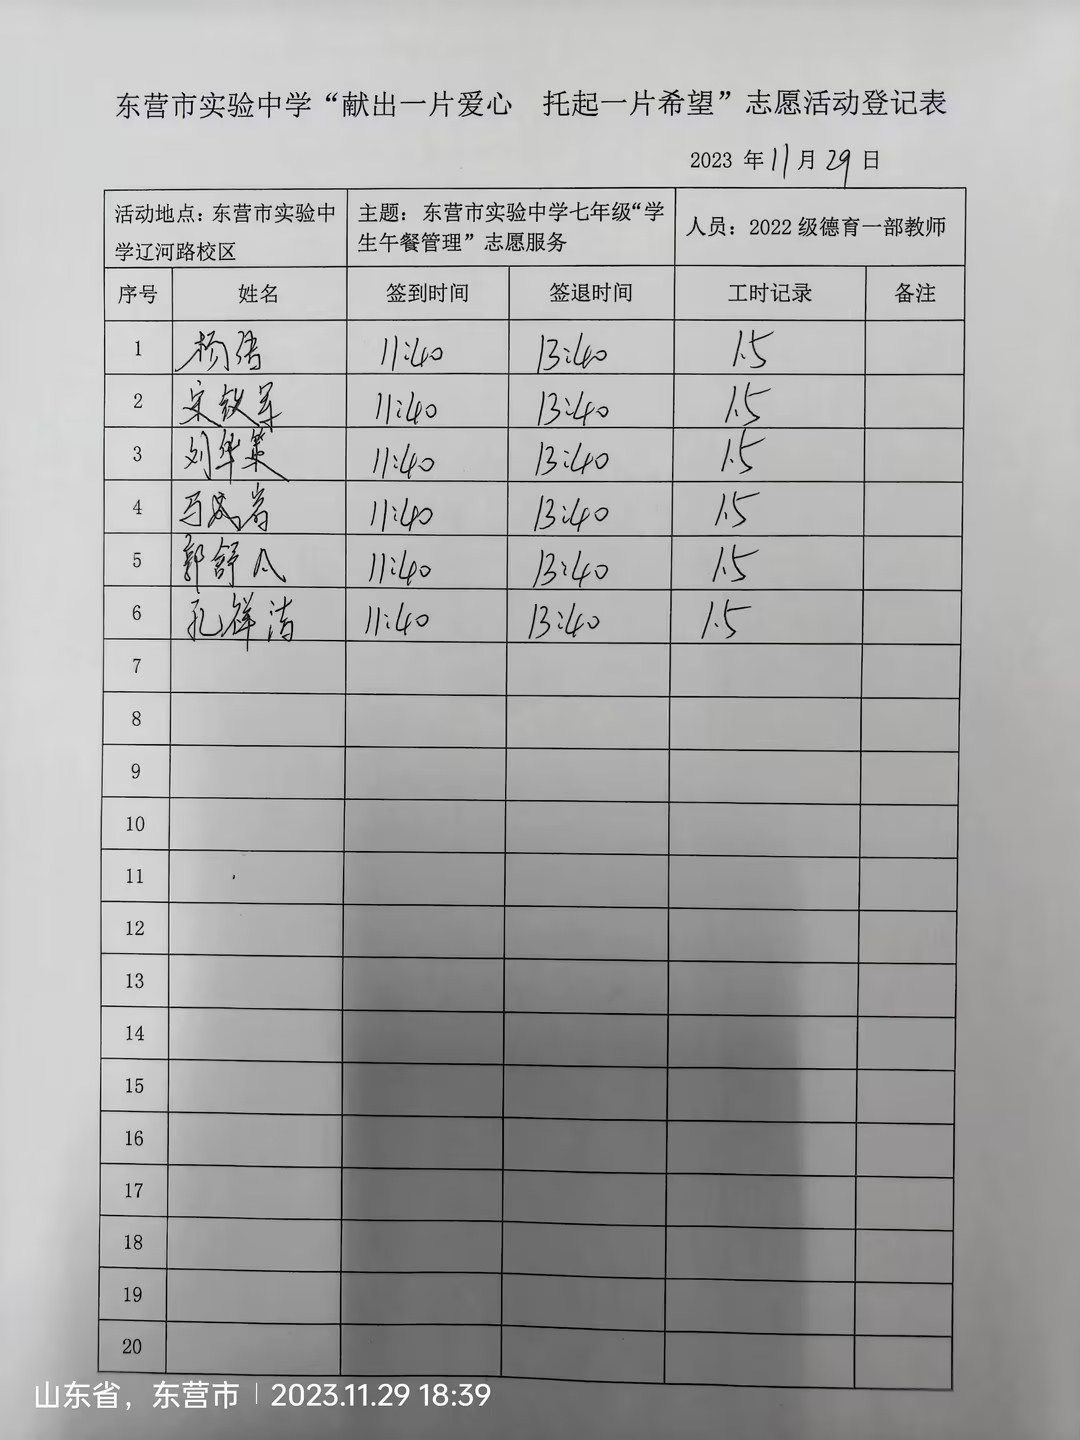 东营市实验中学“献出一片爱心 托起一片希望”志愿活动登记表
2023 年 11 月 29 日
活动地点：东营市实验中学辽河路校区 主题：东营市实验中学七年级“学生午餐管理”志愿服务 人员：2022 级德育一部教师
序号 姓名 签到时间 签退时间 工时记录 备注
1 杨 11:40 13:40 1.5
2 宋 军 11:40 13:40 1.5
3 刘华 11:40 13:40 1.5
4 马 岩 11:40 13:40 1.5
5 郭舒凡 11:40 13:40 1.5
6 孔祥涛 11:40 13:40 1.5
7
8
9
10
11
12
13
14
15
16
17
18
19
20
山东省，东营市 | 2023.11.29 18:39